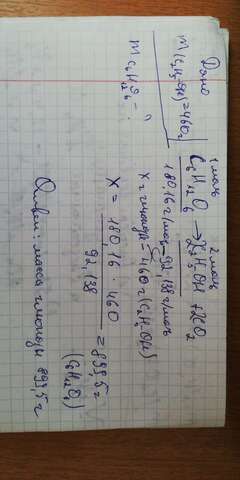 Дано
m(C₂H₅OH)=460г
m C₆H₁₂O₆ - ?
1 моль 2 моль
C₆H₁₂O₆ → 2C₂H₅OH + 2CO₂
180,16 г/моль - 92,138 г/моль
X г глюкозы - 460 г (C₂H₅OH)
X = 180,16 · 460 / 92,138 = 899,5 г (C₆H₁₂O₆)
Ответ: масса глюкозы 899,5 г